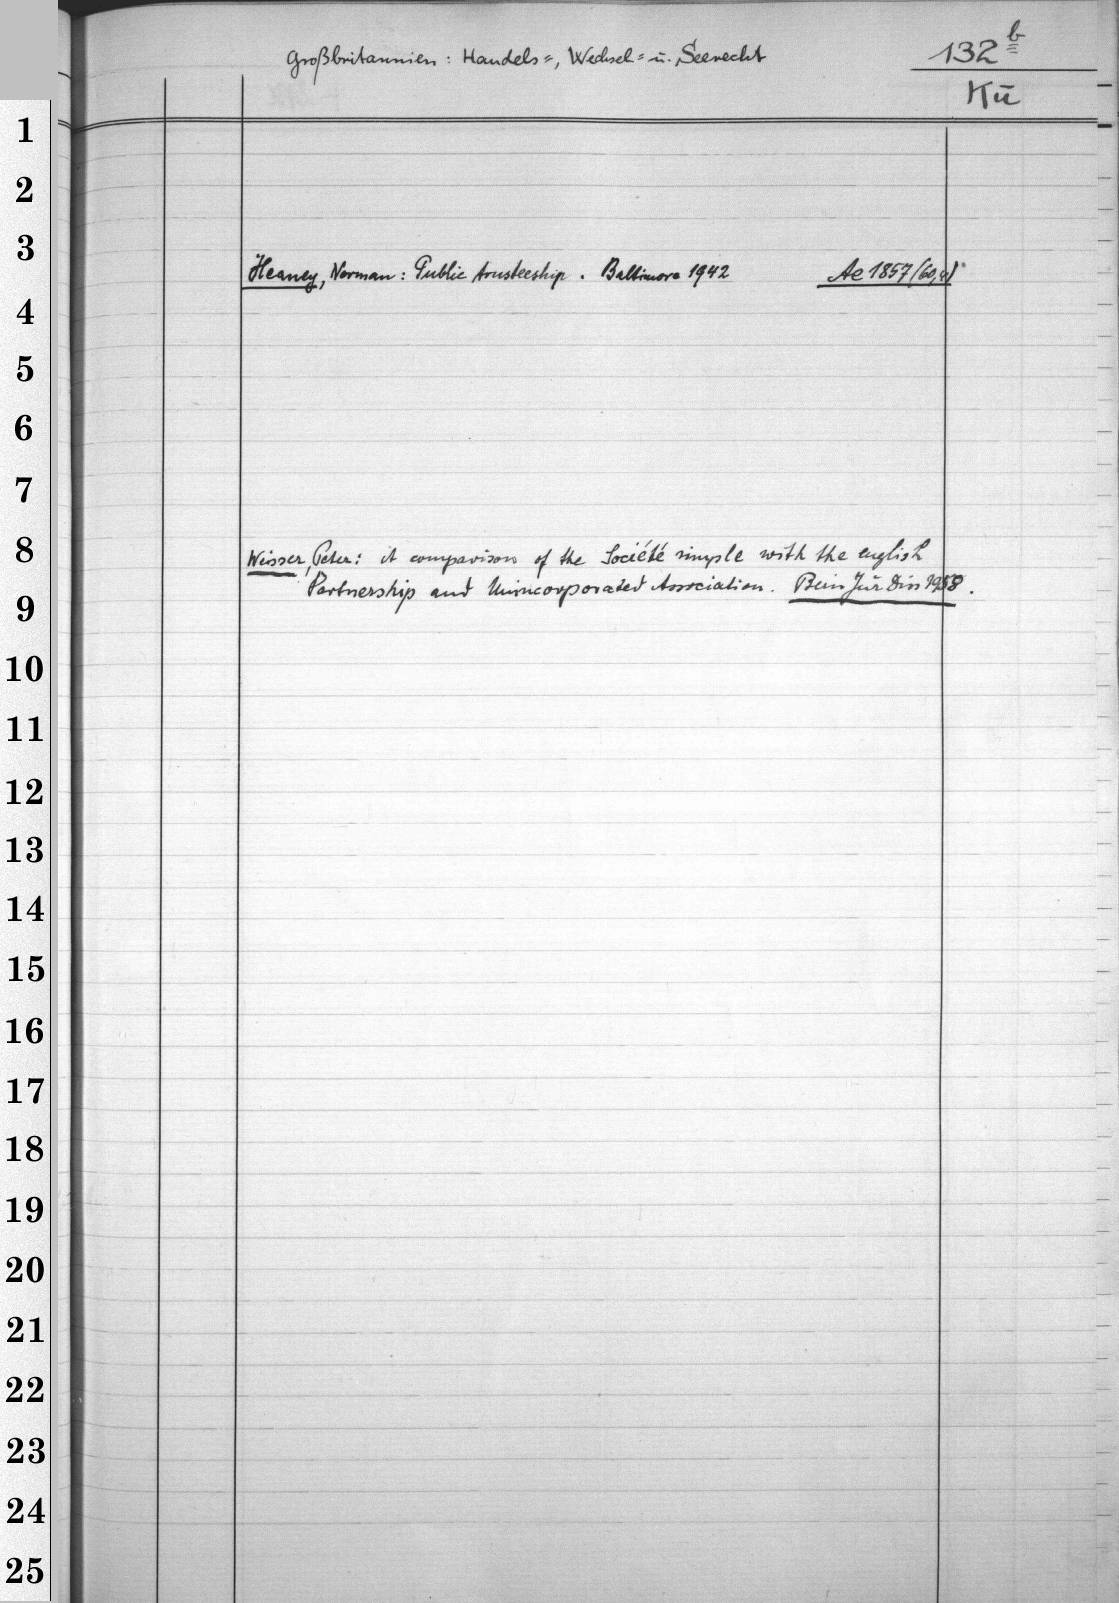 Großbritannien: Handels=, Wechsel= u. Seerecht
132 b
Kü
1
2
3
Heaney, Norman: Public trusteeship. Baltimore 1942 Ae 1857 (60,4)
4
5
6
7
8
Weisser, Peter: A comparison of the Société simple with the english
Partnership and Unincorporated Association. Bern Jur Diss 1958.
9
10
11
12
13
14
15
16
17
18
19
20
21
22
23
24
25